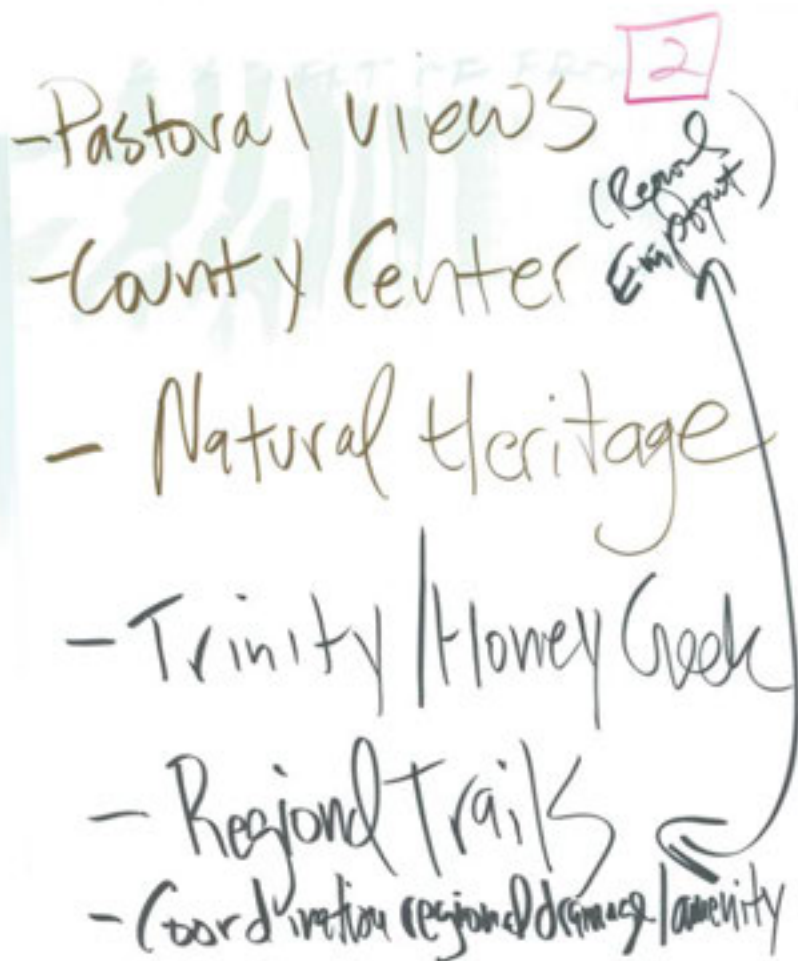 2
- Pastoral views
(Regional
- County Center Employment)
- Natural Heritage
- Trinity / Honey Creek
- Regional Trails
- Coordination regional drainage / amenity